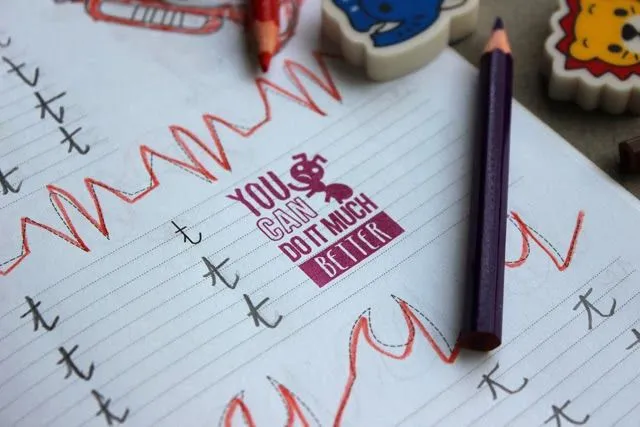 t
t
t
t
YOU
CAN
DO IT MUCH
BETTER
t
t
t
t
t
t
t
t
t